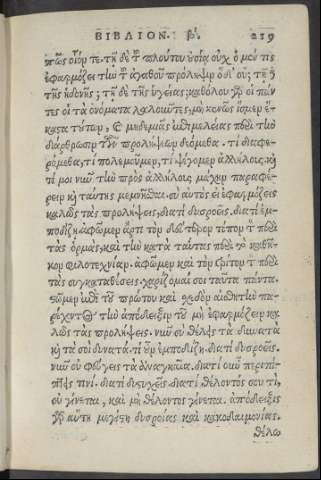 ΒΙΒΛΙΟΝ. β. 219
πῶς οἷόν τε. τῇ δὲ τοῦ πλούτου οὐσίᾳ οὐχ, ὁ μέν τις
ἐφαρμόζει τὴν τοῦ ἀγαθοῦ πρόληψιν ὁ δ' οὔ; τῇ
τῆς ἡδονῆς; τῇ δὲ τῆς ὑγείας; καθόλου γὰρ εἰ πάν
τες οἱ τὰ ὀνόματα λαλοῦντες, μὴ κενῶς ἴσμεν ἕ-
καστα τούτων, καὶ μηδεμιᾶς ἐπιμελείας περὶ τὴν
διάρθρωσιν τῶν προλήψεων δεόμεθα. τί διαφε-
ρόμεθα, τί πολεμοῦμεν, τί ψέγομεν ἀλλήλους. καὶ
τί μοι νῦν τὴν πρὸς ἀλλήλους μάχην παραφέ-
ρειν καὶ ταύτης μεμνῆσθαι. σὺ αὐτὸς εἰ ἐφαρμόζεις
καλῶς τὰς προλήψεις, διατί δυσροεῖς. διατί ἐμ-
ποδίζῃ. ἀφῶμεν ἄρτι τὸν δεύτερον τόπον τὸν περὶ
τὰς ὁρμὰς, καὶ τὴν κατὰ ταύτας περὶ τὸ καθῆ-
κον φιλοτεχνίαν. ἀφῶμεν καὶ τὸν τρίτον τὸν περὶ
τὰς συγκαταθέσεις. χαρίζομαί σοι ταῦτα πάντα.
στῶμεν ἐπὶ τοῦ πρώτου καὶ σχεδὸν αἰσθητὴν πα-
ρέχοντος τὴν ἀπόδειξιν τοῦ μὴ ἐφαρμόζειν κα-
λῶς τὰς προλήψεις. νῦν σὺ θέλεις τὰ δυνατὰ
καὶ τὰ σοὶ δυνατά. τί οὖν ἐμποδίζῃ. διατί δυσροεῖς.
νῦν οὐ φεύγεις τὰ ἀναγκαῖα. διατί οὖν περιπί-
πτεις τινί. διατί δυστυχεῖς. διατί θέλοντός σου τι,
οὐ γίνεται, καὶ μὴ θέλοντος γίνεται. ἀπόδειξις
γὰρ αὕτη μεγίστη δυσροίας καὶ κακοδαιμονίας.
θέλω